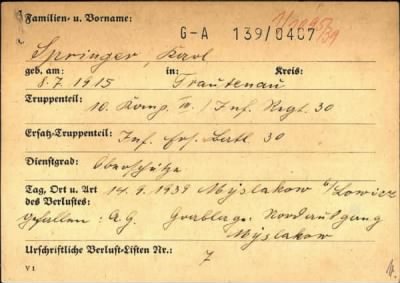 Familien- u. Vorname: G-A 139/0407
Springer, Karl
geb. am: in: Kreis:
8.7.1915 Trautenau
Truppenteil:
10. Komp. III./Inf. Regt. 30
Ersatz-Truppenteil:
Inf. Ers. Batl. 30
Dienstgrad:
Oberschütze
Tag, Ort u. Art 14.9.1939 Myslakow b/Lowicz
des Verlustes:
gefallen: A.G. Grablage: Nordausgang
Myslakow
Urschriftliche Verlust-Listen Nr.:
7
V 1